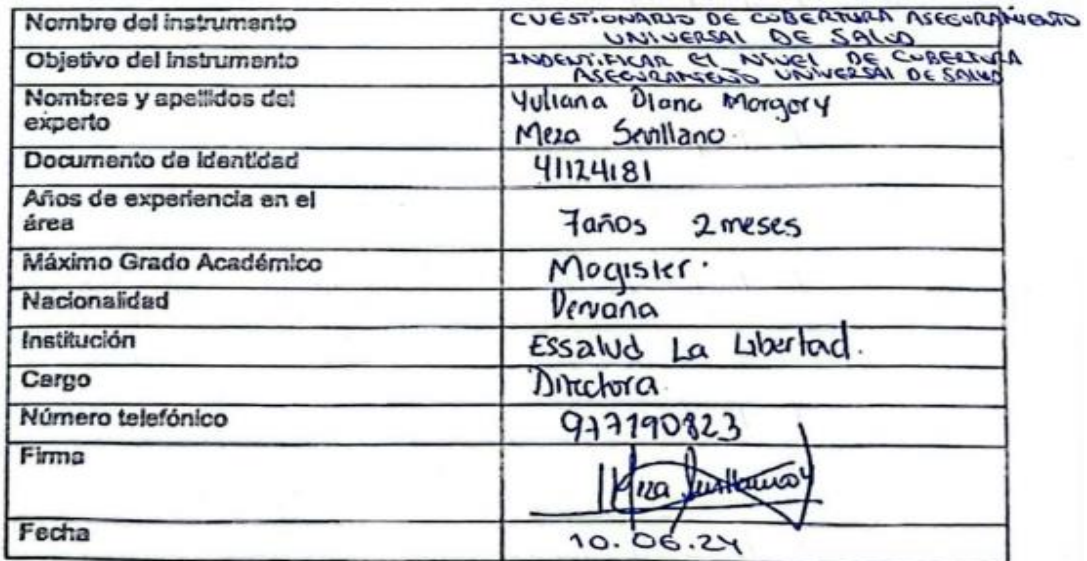 Nombre del instrumento
CUESTIONARIO DE COBERTURA ASEGURAMIENTO
UNIVERSAL DE SALUD
Objetivo del instrumento
INDENTIFICAR El NIVEL DE CUBERTURA
ASEGURAMIENTO UNIVERSAL DE SALUD
Nombres y apellidos del
experto
Yuliana Diana Margory
Meza Sevillano.
Documento de identidad
41124181
Años de experiencia en el
área
7años 2 meses
Máximo Grado Académico
Magister.
Nacionalidad
Peruana
Institución
Essalud La Libertad.
Cargo
Directora
Número telefónico
977190823
Firma
Fecha
10.06.24